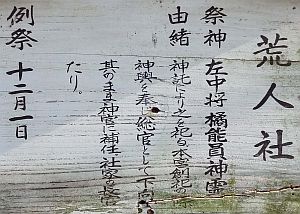 荒人社
祭神 左中将 橘能員神霊
由緒
神託により之を祀る本宮創祀の際
神輿を奉じ総官として下向
其のまま神官に補任 社家の長官
たり。
例祭 十二月一日